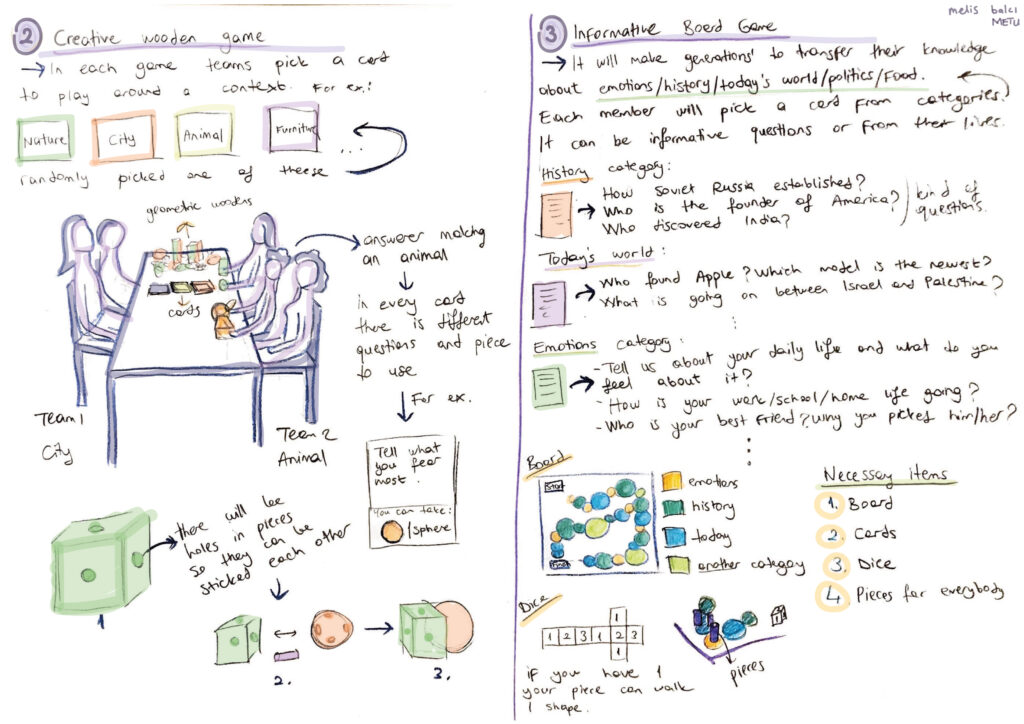 melis balcı
METU
2 Creative wooden game
→ In each game teams pick a card
to play around a context. For ex:
Nature
City
Animal
Furniture
...
randomly picked one of theese
geometric woodens
cards
Team 1
City
Team 2
Animal
answerer making
an animal
in every card
there is different
questions and piece
to use
For ex.
Tell what
you fear
most.
You can take:
Sphere
there will be
holes in pieces
so they can be
sticked each other
1
2.
3.
3 Informative Board Game
→ It will make generations' to transfer their knowledge
about emotions/history/today's world/politics/Food.
Each member will pick a card from categories.
It can be informative questions or from their lives.
History category:
How Soviet Russia established?
Who is the founder of America?
Who discovered India?
kind of
questions.
Today's world:
Who found Apple? Which model is the newest?
What is going on between Israel and Palestine?
Emotions category:
- Tell us about your daily life and what do you
feel about it?
- How is your work/school/home life going?
- Who is your best friend? Why you picked him/her?
Board
Start
emotions
history
today
another category
Necessay items
1. Board
2. Cards
3. Dice
4. Pieces for everybody
Dice
1
1 2 3 1 2 3
1
if you have 1
your piece can walk
1 shape.
pieces